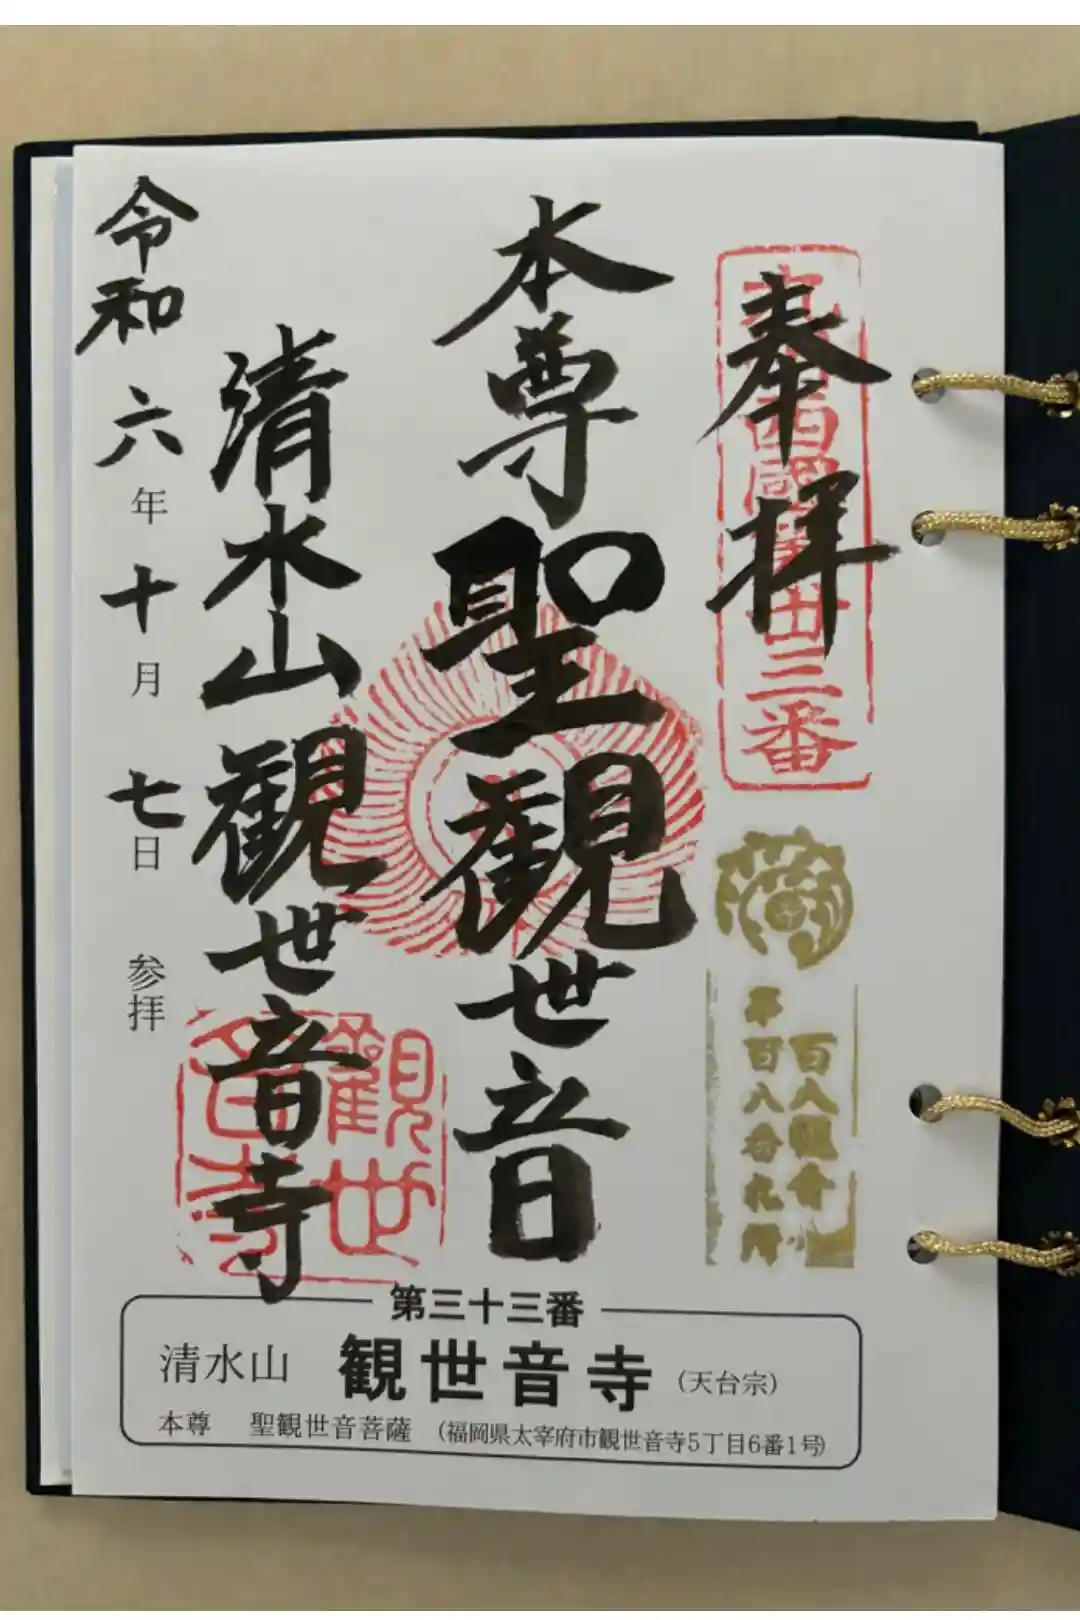 奉拝
九州西国第卅三番
百八観音
第百八番札所
本尊聖観世音
清水山観世音寺
観世音寺
令和六年十月七日参拝
第三十三番
清水山 観世音寺 (天台宗)
本尊 聖観世音菩薩 (福岡県太宰府市観世音寺5丁目6番1号)